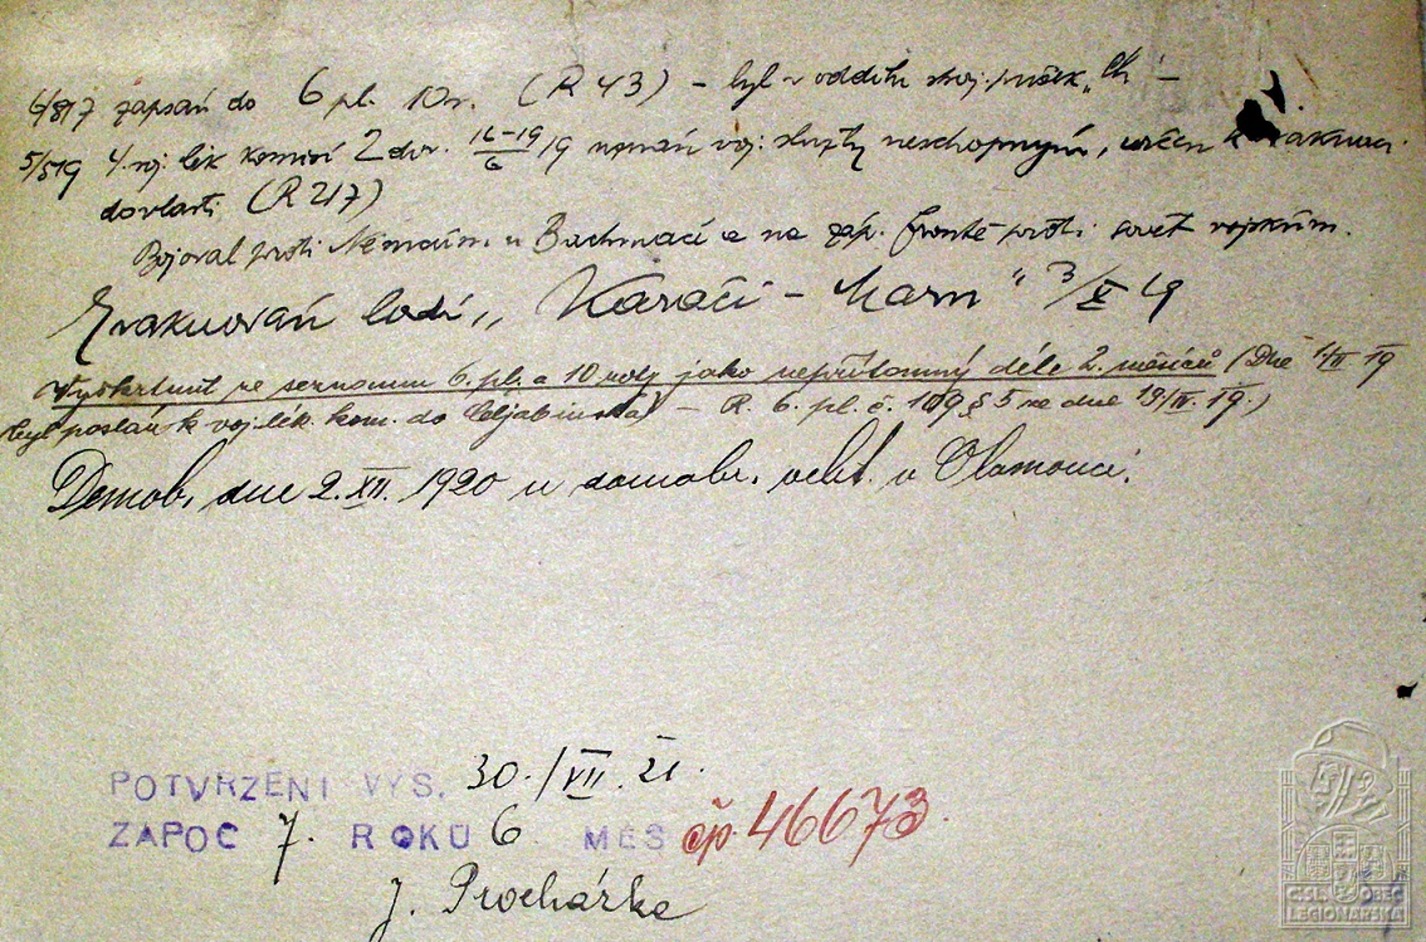 6/8 17 zapsán do 6 pl. 10 r. (R 43) – byl v oddílu stroj. pušek
5/5 19 4. voj. lék komisí 2 div. 16–19/6 19 uznán voj. služby neschopným, určen k evakuaci
do vlasti (R 217)
Bojoval proti Němcům u Bachmače a na záp. frontě proti sovět vojskům.
Evakuován lodí „Karači – Maru" 3/X 19
(Vyškrtnut ze seznamu 6. pl. a 10 roty jako nepřítomný déle 2. měsíců (Dne 1/II 19
byl poslán k voj. lék. kom. do Čeljabinska) – R. 6. pl. č. 109 § 5 ze dne 19/IV. 19.)
Demob. dne 2. XII. 1920 u demobil. v Olomouci.
POTVRZENI VYS. 30./VII. 21.
ZAPOC 7. ROKU 6 MES čp. 46673.
J. Procházka
ČSL. OBEC
LEGIONÁŘSKÁ